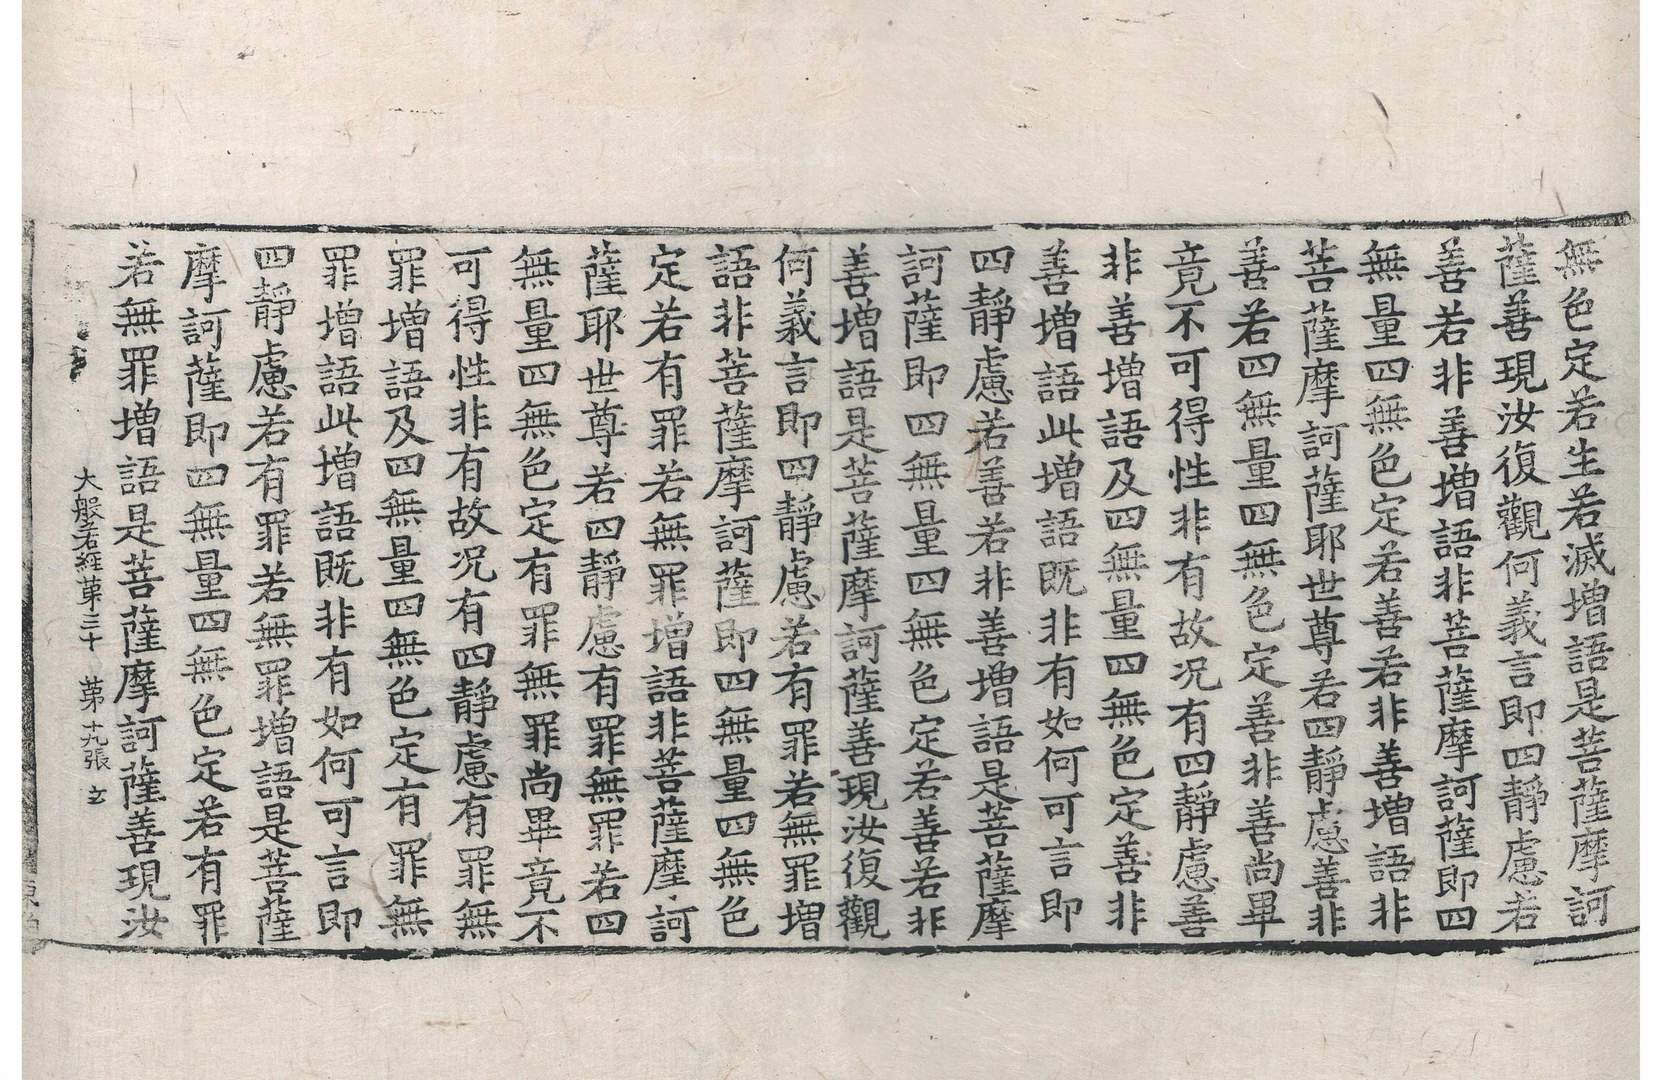 無色定若生若滅增語是菩薩摩訶
薩善現汝復觀何義言即四靜慮若
善若非善增語非菩薩摩訶薩即四
無量四無色定若善若非善增語非
菩薩摩訶薩耶世尊若四靜慮善非
善若四無量四無色定善非善尚畢
竟不可得性非有故况有四靜慮善
非善增語及四無量四無色定善非
善增語此增語既非有如何可言即
四靜慮若善若非善增語是菩薩摩
訶薩即四無量四無色定若善若非
善增語是菩薩摩訶薩善現汝復觀
何義言即四靜慮若有罪若無罪增
語非菩薩摩訶薩即四無量四無色
定若有罪若無罪增語非菩薩摩訶
薩耶世尊若四靜慮有罪無罪若四
無量四無色定有罪無罪尚畢竟不
可得性非有故况有四靜慮有罪無
罪增語及四無量四無色定有罪無
罪增語此增語既非有如何可言即
四靜慮若有罪若無罪增語是菩薩
摩訶薩即四無量四無色定若有罪
若無罪增語是菩薩摩訶薩善現汝
大般若經第三十 第十九張